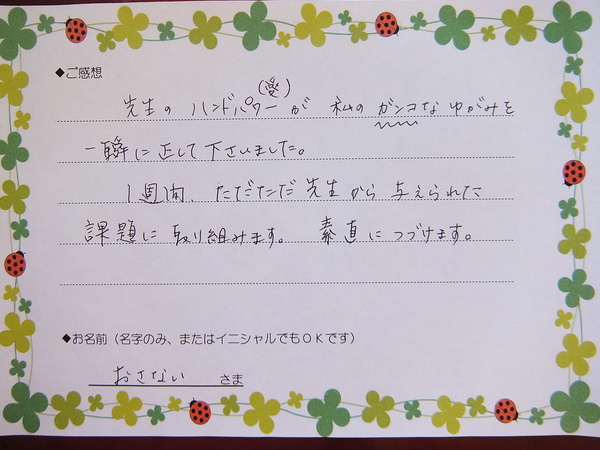 ◆ご感想
(愛)
先生の ハンドパワーが 私の ガンコな ゆがみを
一瞬に正して下さいました。
1週間、ただただ 先生から 与えられた
課題に取り組みます。 素直につづけます。
◆お名前（名字のみ、またはイニシャルでもＯＫです）
おさない さま